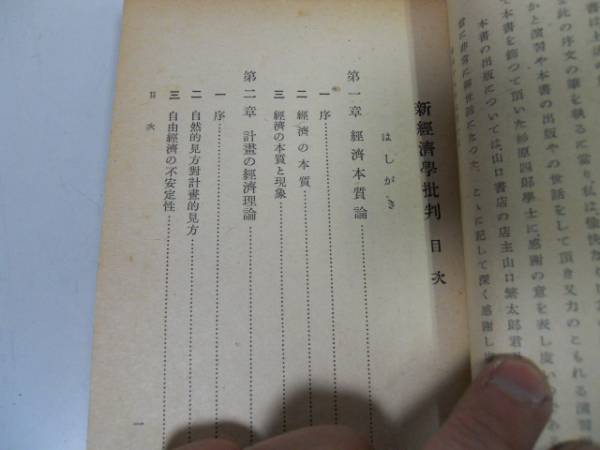 書は上述の
な此の序文の筆を執るに當り、私は愉快な
かと演習や本書の出版やの世話をして頂き又力のともれる演習
て本書を飾つて頂いた杉原四郎學士に、感謝の意を表し度い
本書の出版については、山口書店の店主山口繁太郎君
に記して深く感謝し
新經濟學批判 目次
はしがき
第一章 經濟本質論
一 序
二 經濟の本質
三 經濟の本質と現象
第二章 計畫の經濟理論
一 序
二 自然的見方對計畫的見方
三 自由經濟の不安定性
目次
一